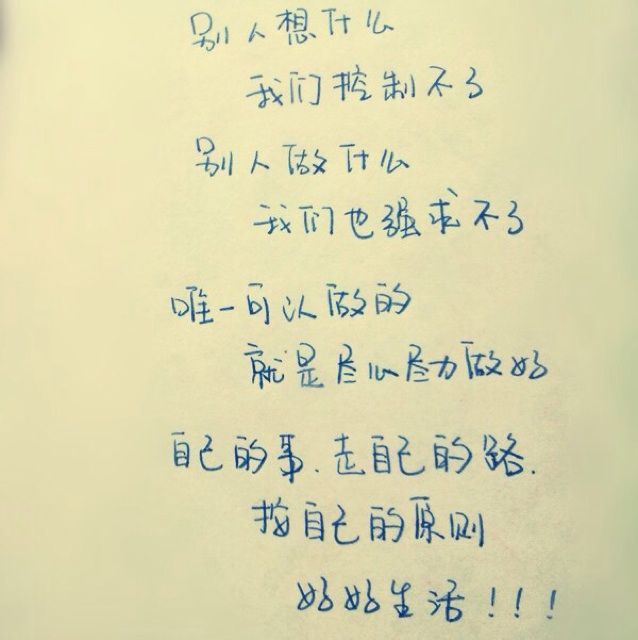 别人想什么
我们控制不了
别人做什么
我们也强求不了
唯一可以做的
就是尽心尽力做好
自己的事.走自己的路.
按自己的原则
好好生活!!!